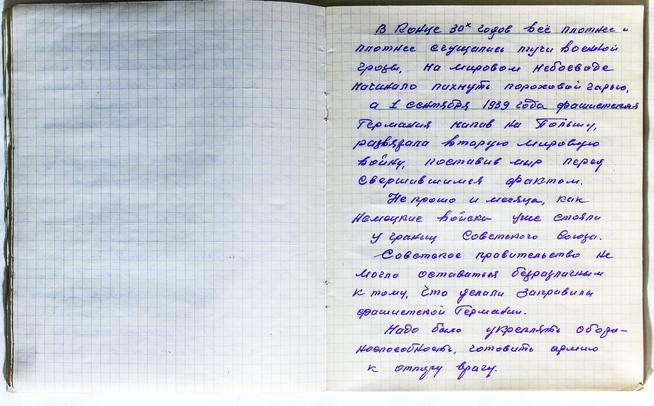 В конце 30х годов всё плотнее и
плотнее сгущались тучи военной
грозы, на мировом небосводе
начинало пахнуть пороховой гарью,
а 1 сентября 1939 года фашистская
Германия напав на Польшу,
развязала вторую мировую
войну, поставив мир перед
свершившимся фактом.
Не прошло и месяца, как
немецкие войска уже стояли
у границ Советского Союза.
Советское правительство не
могло оставаться безразличным
к тому, что делали заправилы
фашистской Германии.
Надо было укреплять оборо-
носпособность, готовить армию
к отпору врагу.